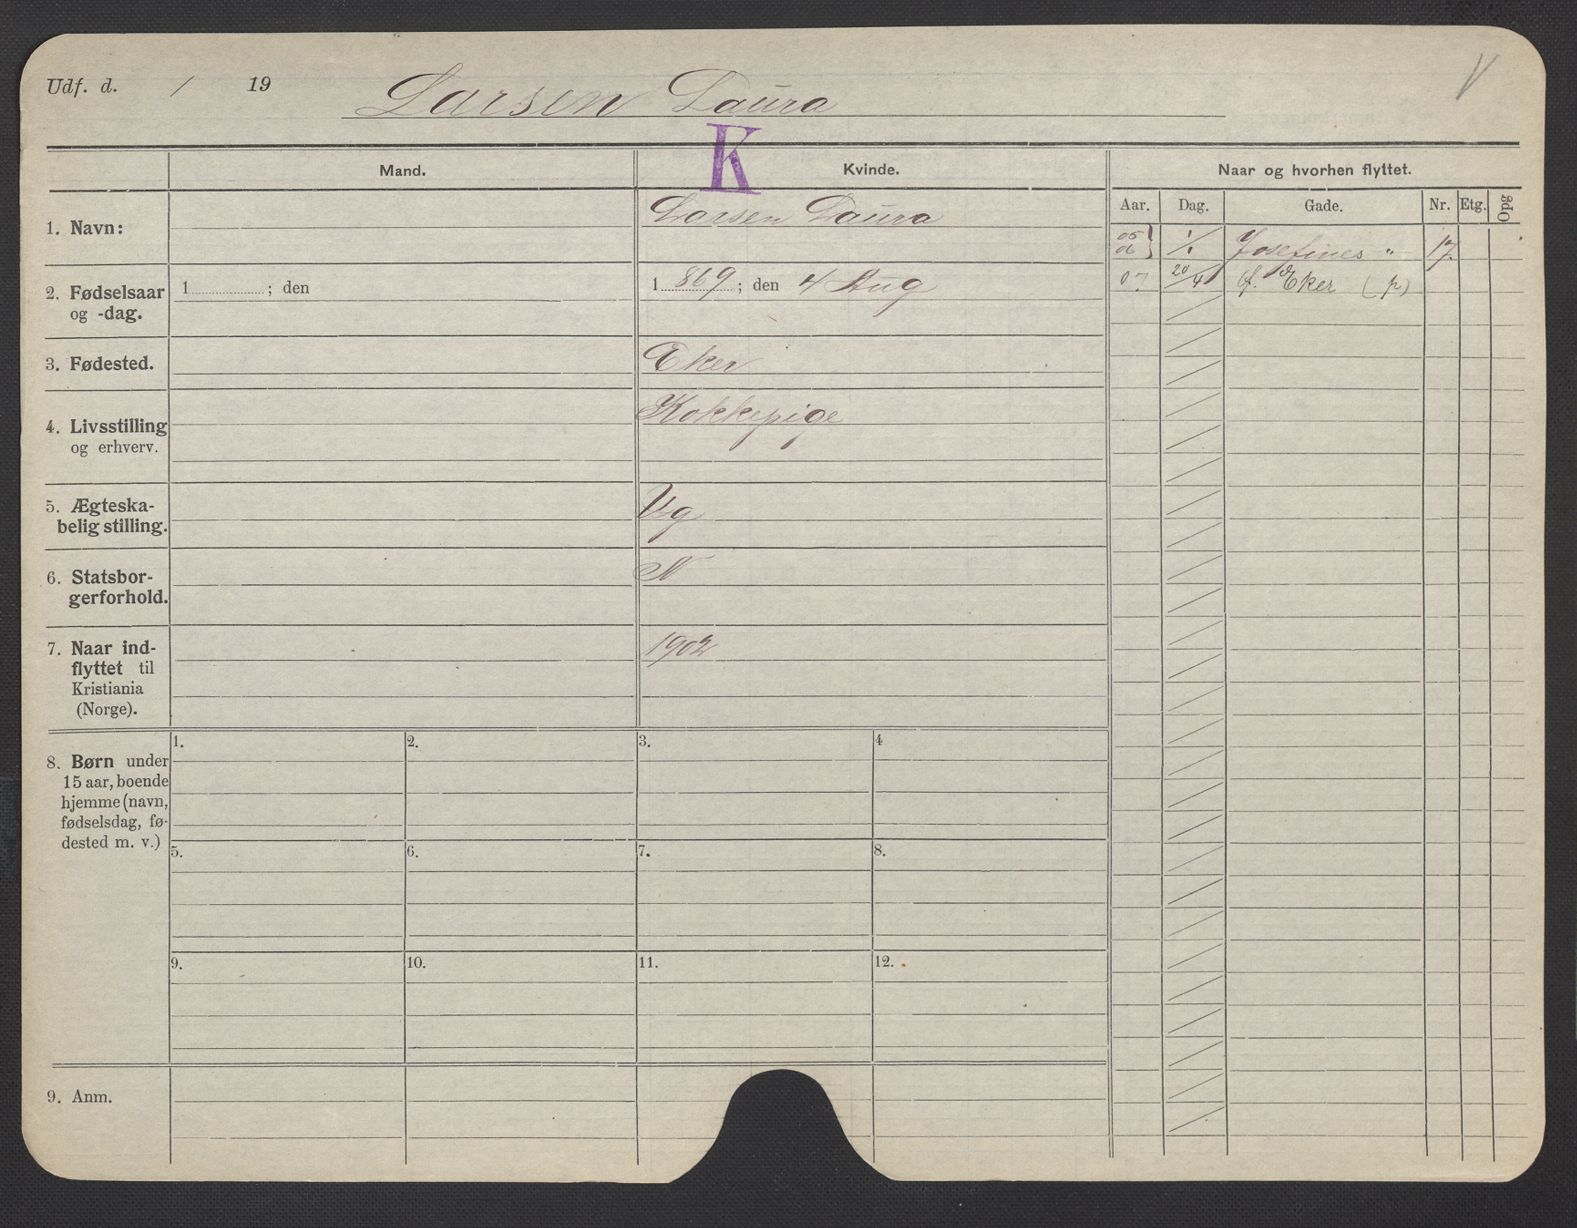 Udf. d. / 19 Larsen Laura V
K
Mand. Kvinde. Naar og hvorhen flyttet.
Aar. Dag. Gade. Nr. Etg. Opg
1. Navn: Larsen Laura
05 06 } 1/1 Josefines " 17.
07 20/4 f. Eker (p)
2. Fødselsaar og -dag. 1 ; den 1 869 ; den 4 Aug
3. Fødested. Eker
4. Livsstilling og erhverv. Kokkepige
5. Ægteska-
belig stilling. Ug
6. Statsbor-
gerforhold. N
7. Naar ind-
flyttet til
Kristiania
(Norge). 1902
8. Børn under
15 aar, boende
hjemme (navn,
fødselsdag, fø-
dested m. v.)
1. 2. 3. 4
5. 6. 7. 8.
9. 10. 11. 12.
9. Anm.